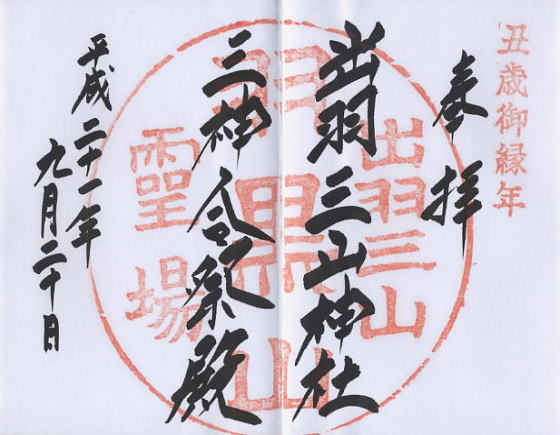 丑歳御縁年
奉拝
出羽三山神社
三神合祭殿
平成二十一年
九月二十日
出羽三山
羽黒山
霊場